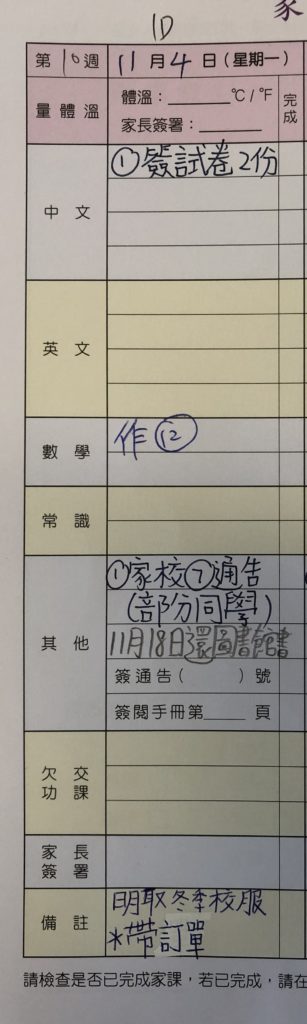 家
1D
第10週 11月4日(星期一)
量體溫 體溫：______℃/℉ 完成
家長簽署：______
中文 ①簽試卷2份
英文
數學 作⑫
常識
其他 ①家校⑦通告
(部分同學)
11月18日還圖書館書
簽通告( )號
簽閱手冊第____頁
欠交功課
家長簽署
備註 明取冬季校服
*帶訂單
請檢查是否已完成家課，若已完成，請在